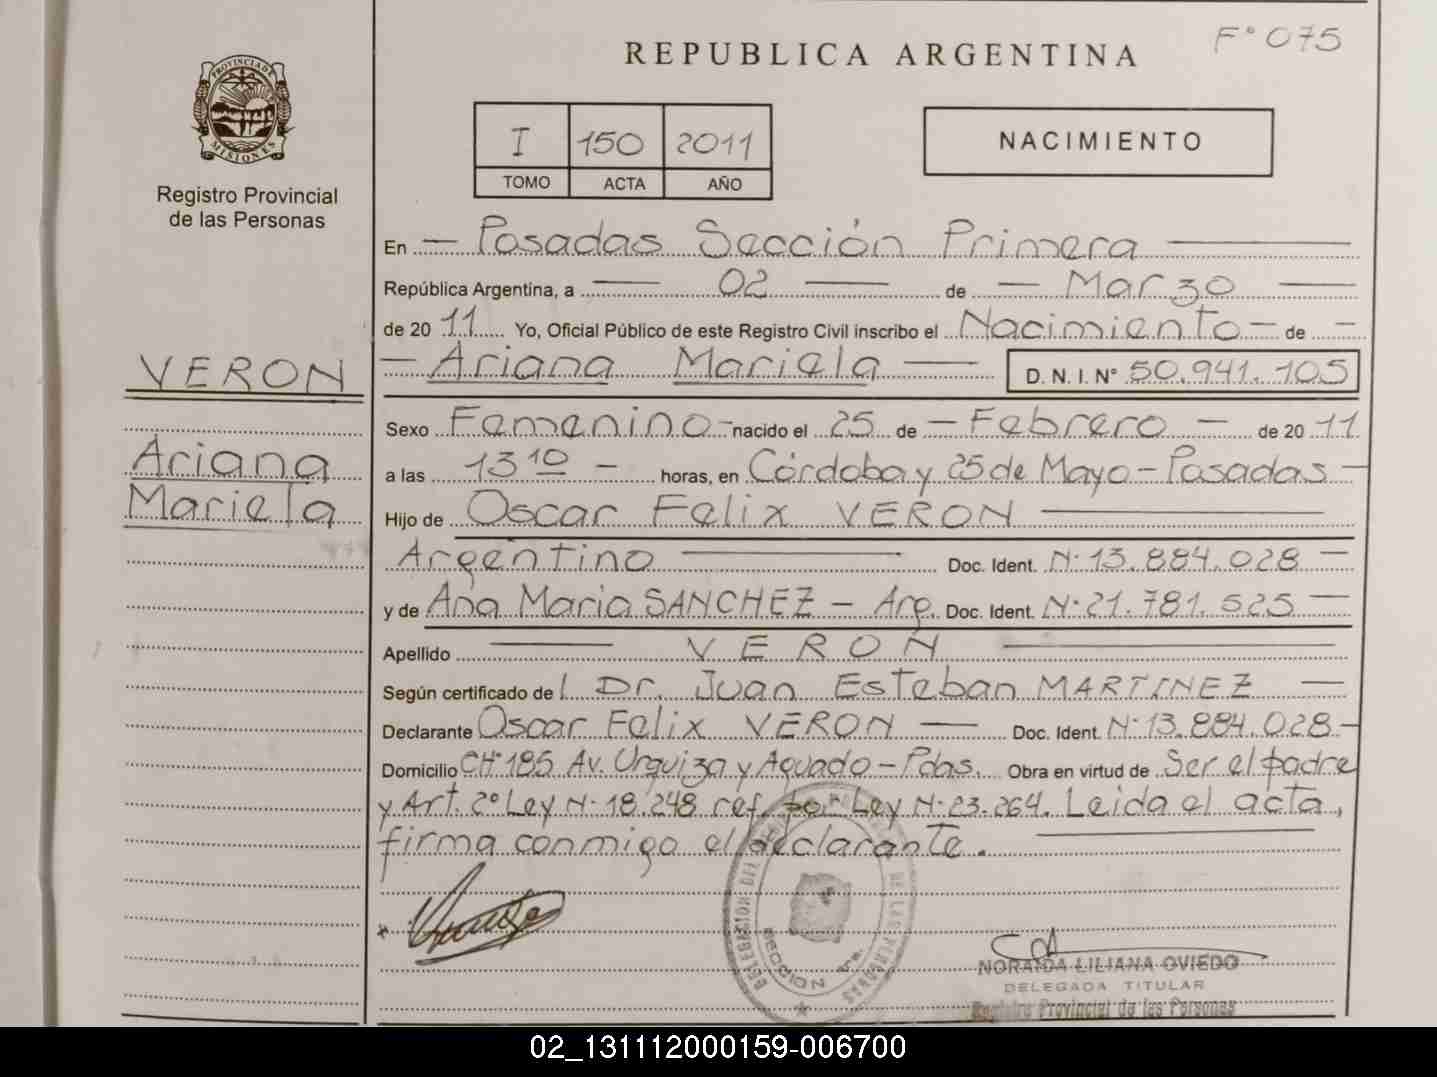 REPUBLICA ARGENTINA
F° 075
PROVINCIA DE MISIONES
Registro Provincial
de las Personas
I 150 2011
TOMO ACTA AÑO
NACIMIENTO
En — Posadas Sección Primera —
República Argentina, a — 02 — de — Marzo —
de 20 11 Yo, Oficial Público de este Registro Civil inscribo el Nacimiento — de —
— Ariana Mariela — D. N. I. N° 50.941.105
VERON
Ariana
Mariela
Sexo Femenino — nacido el 25 de — Febrero — de 20 11
a las 13 10 — horas, en Córdoba y 25 de Mayo — Posadas —
Hijo de Oscar Felix VERON —
Argentino — Doc. Ident. N° 13.884.028 —
y de Ana Maria SANCHEZ — Arg. Doc. Ident. N° 21.781.525 —
Apellido — VERON —
Según certificado del Dr. Juan Esteban MARTINEZ —
Declarante Oscar Felix VERON — Doc. Ident. N° 13.884.028 —
Domicilio CH° 185 Av. Urquiza y Aguado — Pdas. Obra en virtud de Ser el padre
y Art. 2° Ley N° 18.248 ref. por Ley N° 23.264. Leida el acta,
firma conmigo el declarante.
DELEGACION DEL REGISTRO PROVINCIAL DE LAS PERSONAS
SECCION 1ra.
NORAIDA LILIANA OVIEDO
DELEGADA TITULAR
Registro Provincial de las Personas
02_131112000159-006700